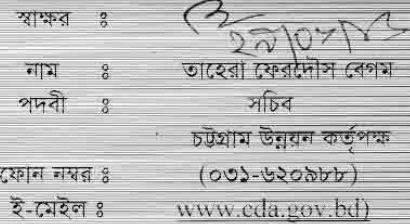 স্বাক্ষর ঃ
নাম ঃ তাহেরা ফেরদৌস বেগম
পদবী ঃ সচিব
চট্টগ্রাম উন্নয়ন কর্তৃপক্ষ
ফোন নম্বর ঃ (০৩১-৬২০৯৮৮)
ই-মেইল ঃ www.cda.gov.bd)